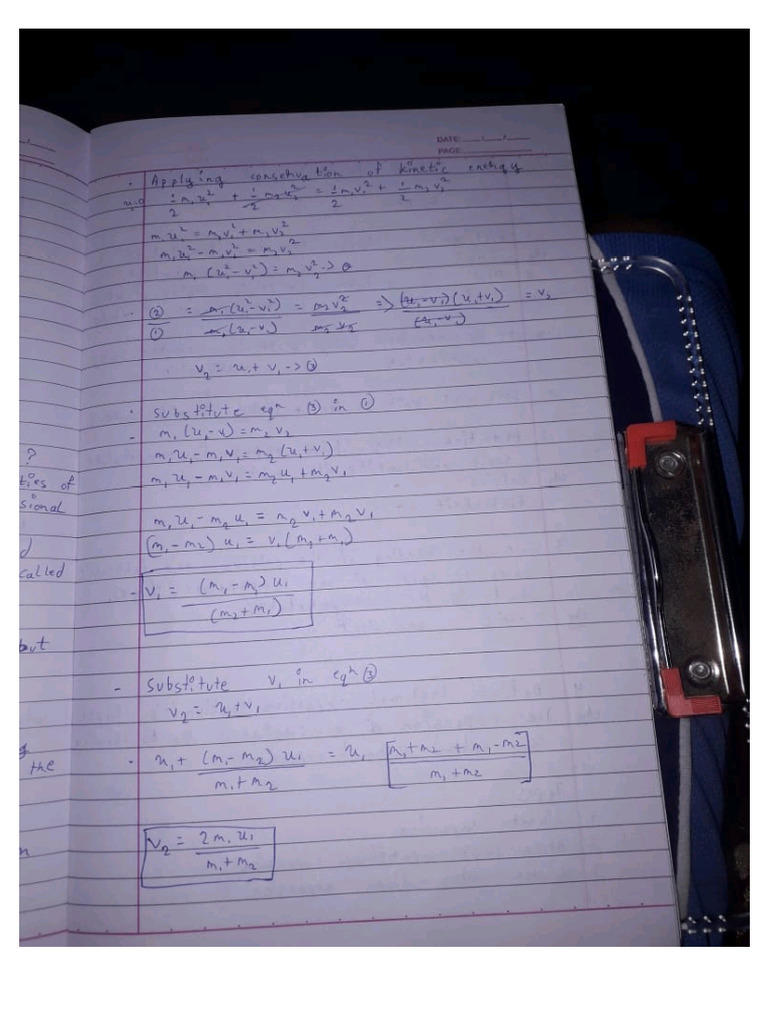 DATE: __/__/__
PAGE
· Applying conservation of kinetic energy
u₂=0 1/2 m₁u₁² + 1/2 m₂u₂² = 1/2 m₁v₁² + 1/2 m₂v₂²
m₁u₁² = m₁v₁² + m₂v₂²
m₁u₁² - m₁v₁² = m₂v₂²
m₁ (u₁² - v₁²) = m₂v₂² -> ②
· ②/① = m₁(u₁²-v₁²)/m₁(u₁-v₁) = m₂v₂²/m₂v₂ => (u₁-v₁)(u₁+v₁)/(u₁-v₁) = v₂
v₂ = u₁ + v₁ -> ③
· Substitute eqn ③ in ①
- m₁ (u₁-v₁) = m₂ v₂
m₁u₁ - m₁v₁ = m₂ (u₁+v₁)
?
m₁u₁ - m₁v₁ = m₂u₁ + m₂v₁
ties of
sional
m₁u₁ - m₂u₁ = m₂v₁ + m₂v₁
(m₁-m₂) u₁ = v₁(m₂+m₁)
d
called
- v₁ = (m₁-m₂) u₁/(m₂+m₁)
but
- Substitute v₁ in eqn ③
v₂ = u₁+v₁
the
· u₁ + (m₁-m₂) u₁/m₁+m₂ = u₁ [m₁+m₂ + m₁-m₂/m₁+m₂]
n
v₂ = 2m₁u₁/m₁+m₂